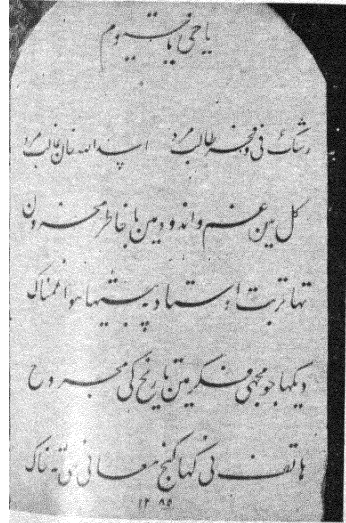 یا حی یا قیوم
رشک عرفی و فخر طالب مرد اسد اللہ خان غالب مرد
کل مین غم و اندوہ مین با خاطر محزون
تھا تربت استاد پہ بیٹھا ہوا غمناک
دیکھا جو مجھی فکر مین تاریخ کی مجروح
ہاتف نی کہا گنج معانی ہی تہ خاک
۱۲۸۵